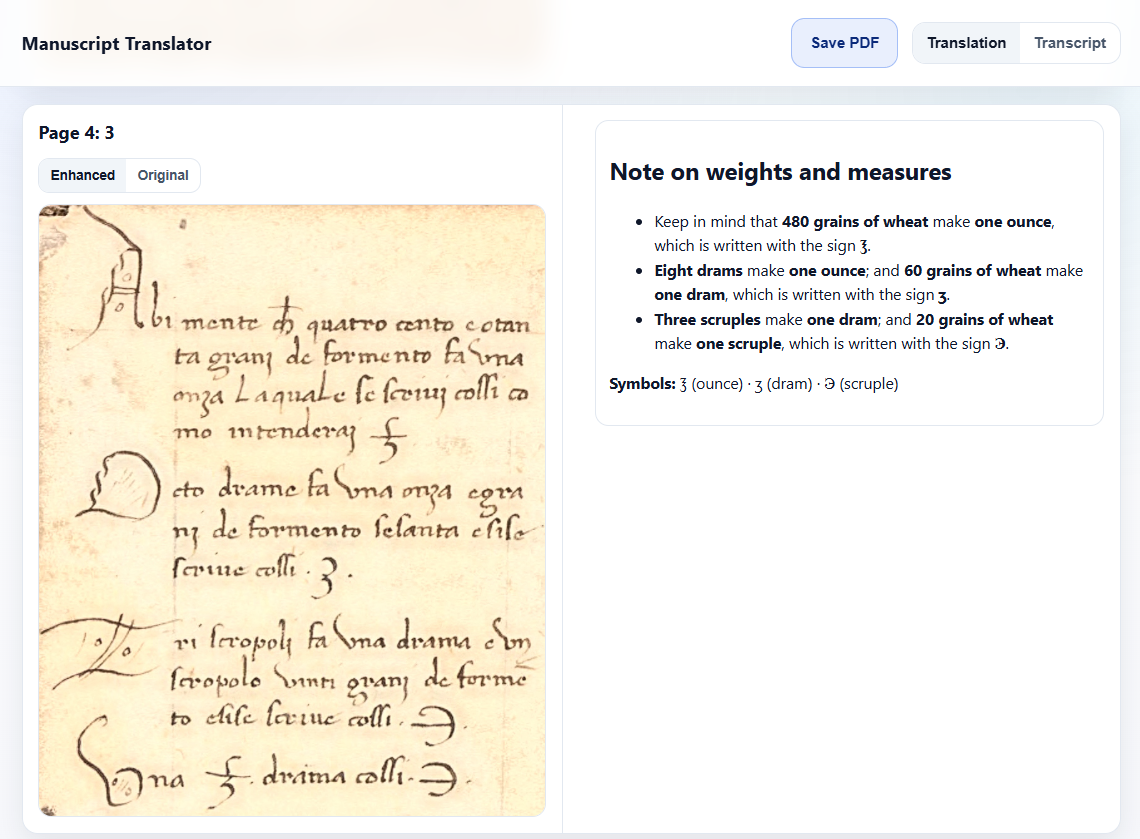 Manuscript Translator
Save PDF
Translation
Transcript
Page 4: 3
Enhanced
Original
Abi mente ch quatro cento e otan
ta granj de formento fa vna
onza Laquale se scriuj cossi co
mo intenderaj ℥
Octo drame fa vna onza e gra
nj de formento sesanta e sise
scriue cossi . ʒ .
Tri scropolj fa vna drama e vn
scropolo vinti granj de forme
to e sise scriue cossi . ℈ .
Vna ℥ . drama cossi . ℈ .
Note on weights and measures
• Keep in mind that 480 grains of wheat make one ounce,
which is written with the sign ℥.
• Eight drams make one ounce; and 60 grains of wheat make
one dram, which is written with the sign ʒ.
• Three scruples make one dram; and 20 grains of wheat
make one scruple, which is written with the sign ℈.
Symbols: ℥ (ounce) · ʒ (dram) · ℈ (scruple)